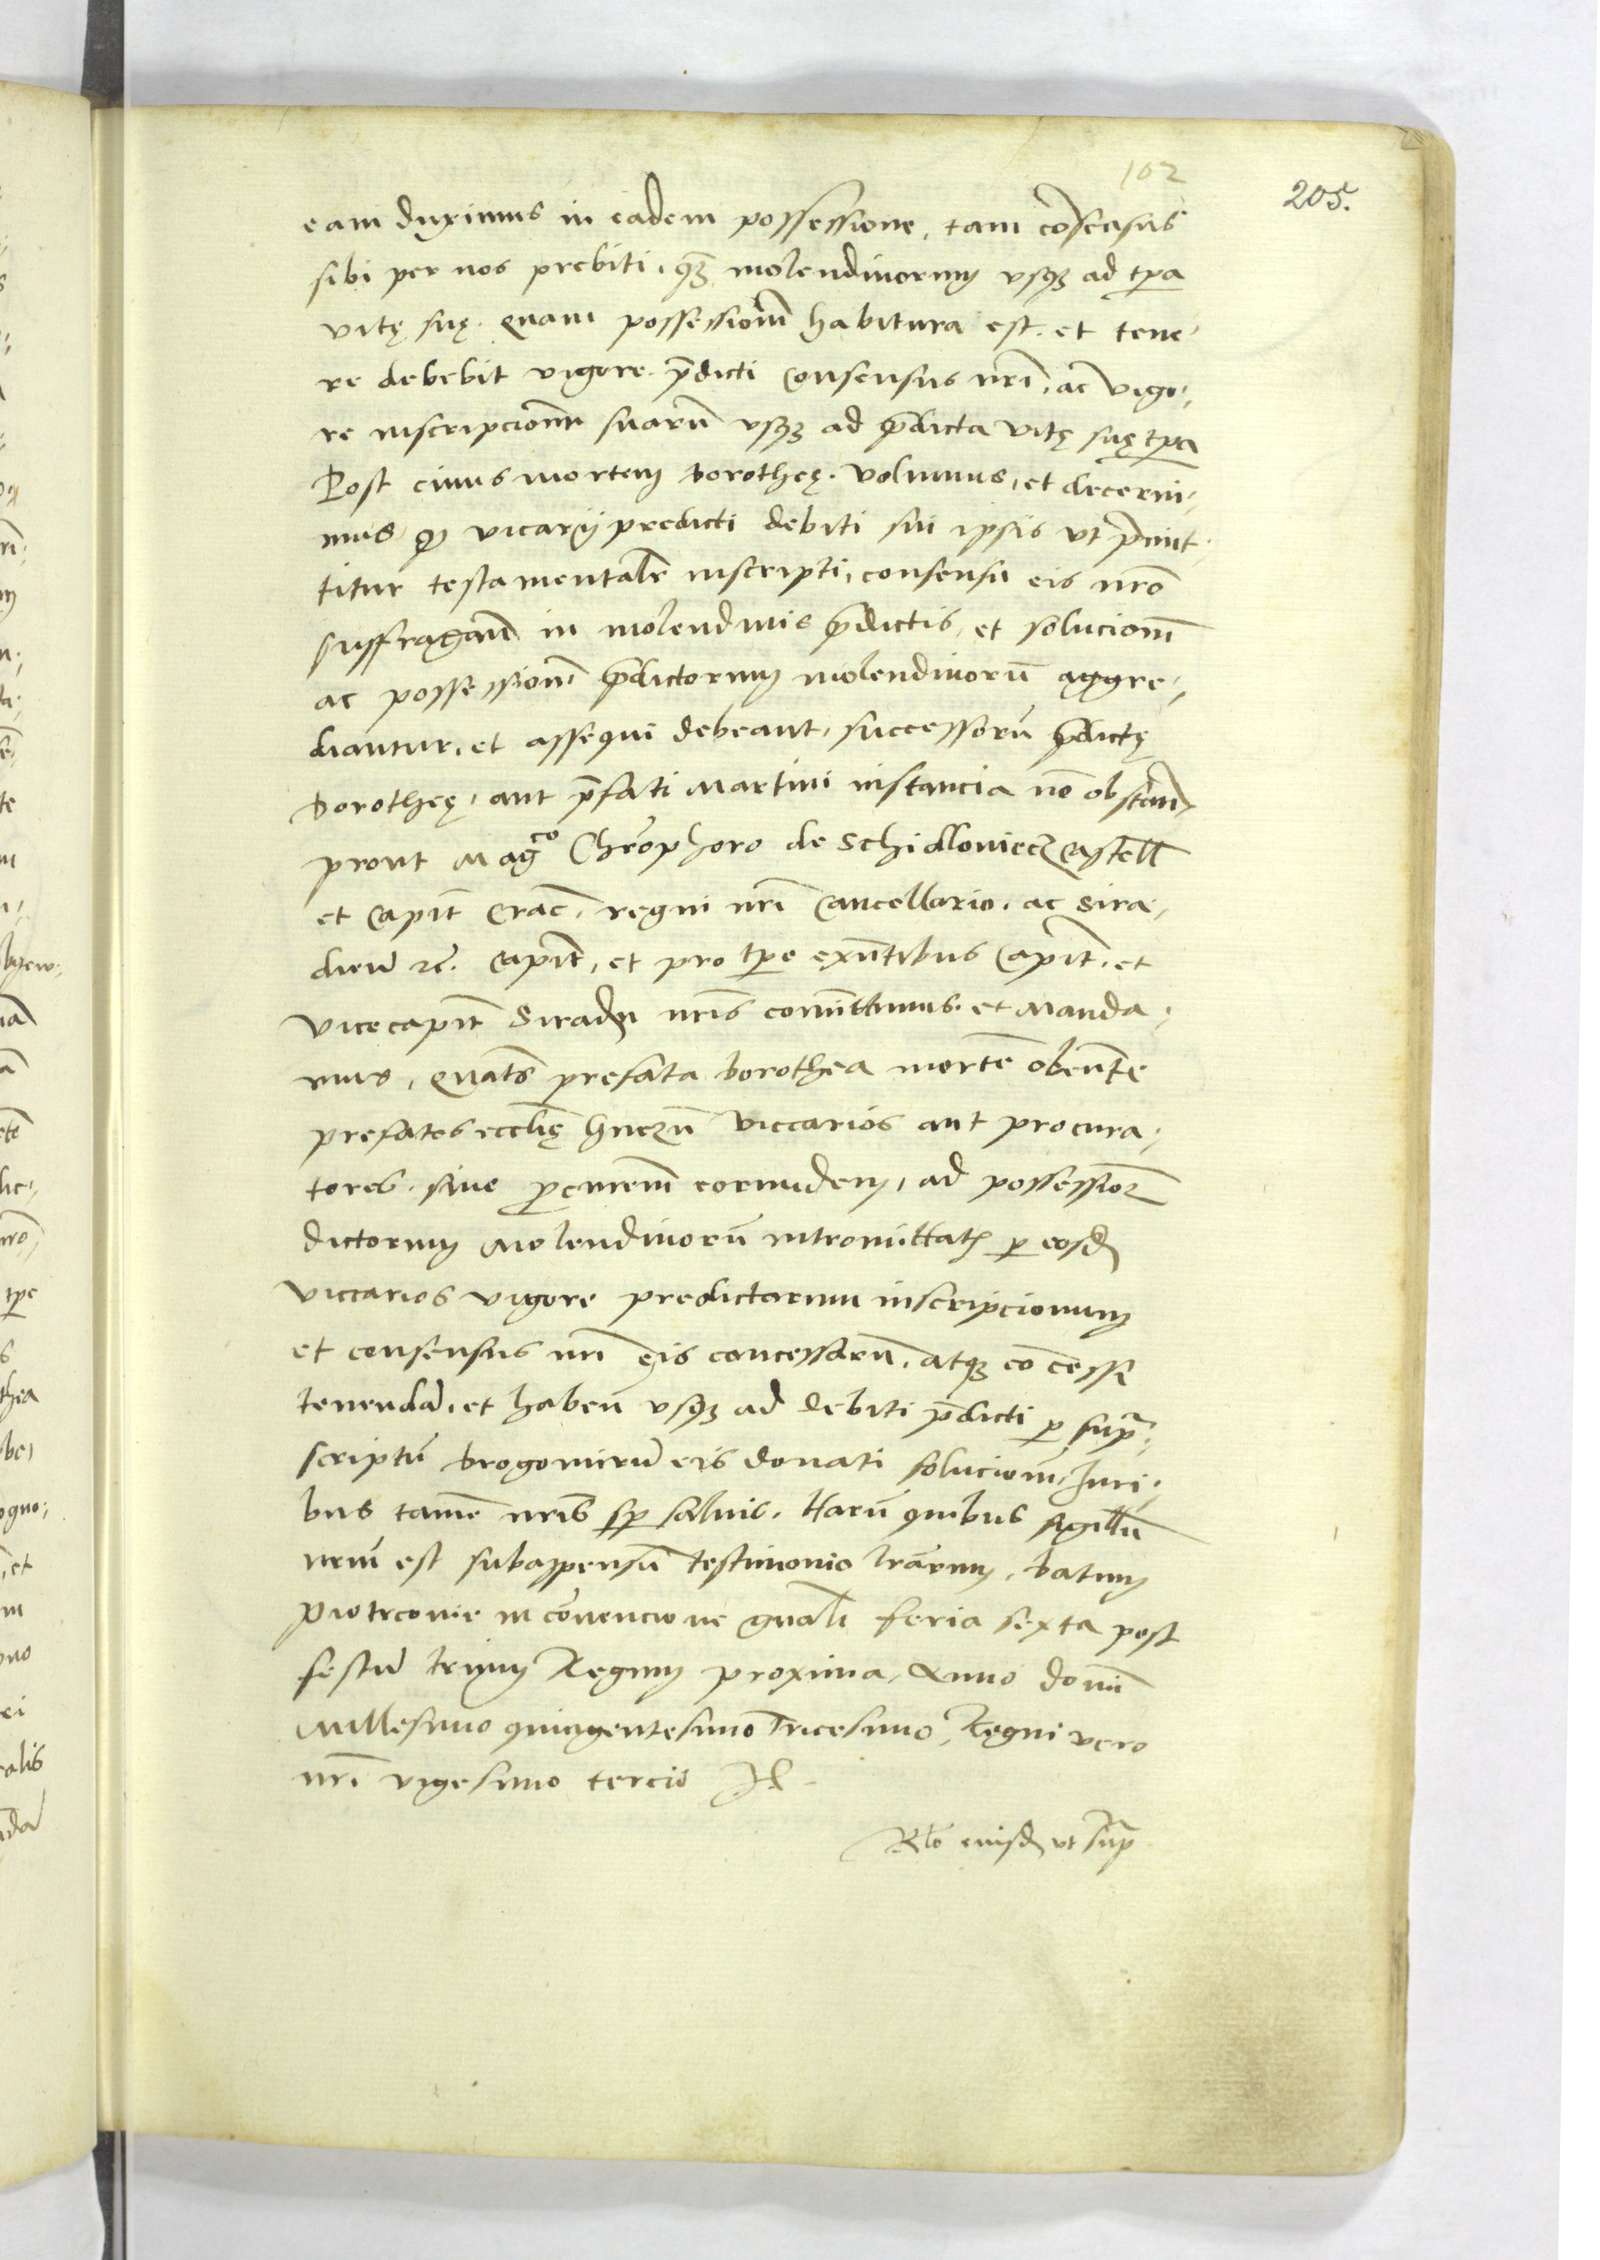 102
205.
eam duximus in eadem possessione, tam cōsensus
sibi per nos prebiti, q̃ꝫ molendinorum vsqꝫ ad tp̄a
vitę suę. Quam possessionē habitura est. et tene¬
re debebit vigore p̄dicti Consensus nr̄i, ac vigo¬
re inscripcionū suarū vsqꝫ ad p̄dicta vitę suę tp̄a
Post cuius mortem Dorotheę. Volumus, et decerni¬
mus ꝙ vicarij predicti debiti sui ipsis vt p̄mit¬
titur testamentalr̄ inscripti, consensu eis nr̄o
suffragan̄ in molendinis p̄dictis, et solucionē
ac possessionē p̄dictorum molendinorū aggre¬
diantur, et assequi debeant, successorū p̄dictę
Dorotheę, aut p̄fati Martini instancia nō obstan̄
prout Mag^co Chr̄ophoro de Schidloviecz Castell̄
et Capit̄ Crac̄. regni nr̄i Cancellario, ac Sira¬
dien̄ ꝛc̄. Capit̄, et pro tp̄e exn̄tibus Capit̄. et
Vicecapit̄ Siradn̄ nr̄is com̄ittimus et Manda¬
mus, Quat̄s prefata Dorothea mortē obeunte
prefatos eccl̄ię Gnezn̄ Viccarios aut procura¬
tores siue p̄curem̄ eorundem, ad possessionē
dictorum Molendinorū intromittat̄ p eosd̄
Viccarios vigore predictarum inscripcionum
et consensus nr̄i eis concessarū, atqꝫ cōcesse
tenendā, et haben̄ vsqꝫ ad debiti p̄dicti p sup̄¬
scriptū Drogomirū eis donati solucionē, Juri¬
bus tamē nr̄is sp̄ saluis. Harū quibus sigillū
nrm̄ est subappensū testimonio lr̄arum, Datum
Piotrcouie in cōuencione gn̄ali feria sexta post
festū Trium Regum proxima, Anno domī
Millesimo quingentesimo Tricesimo, Regni vero
nr̄i vigesimo tercio
Rl̄o eiusd̄ vt sup̄